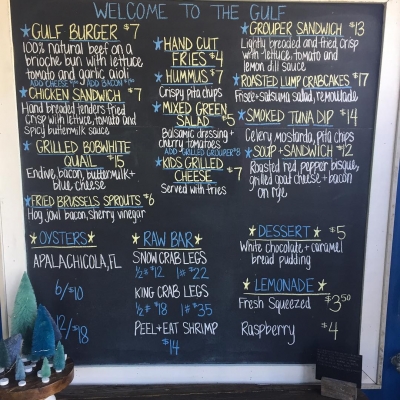 WELCOME TO THE GULF
GULF BURGER $7
100% natural beef on a
brioche bun with lettuce
tomato and garlic aioli
ADD CHEESE ADD BACON
CHICKEN SANDWICH $7
Hand breaded tenders fried
crisp with lettuce, tomato and
spicy buttermilk sauce
GRILLED BOBWHITE
QUAIL $15
Endive, bacon, buttermilk +
blue cheese
FRIED BRUSSELS SPROUTS $6
Hog jowl bacon, sherry vinegar
HAND CUT
FRIES $4
HUMMUS $7
Crispy pita chips
MIXED GREEN
SALAD $5
Balsamic dressing +
cherry tomatoes
ADD GRILLED GROUPER $8
KIDS GRILLED
CHEESE $7
Served with fries
GROUPER SANDWICH $13
Lightly breaded and fried crisp
with lettuce, tomato and
lemon dill sauce
ROASTED LUMP CRABCAKES $17
Frisee + satsuma salad, remoulade
SMOKED TUNA DIP $14
Celery, mostarda, pita chips
SOUP + SANDWICH $12
Roasted red pepper bisque,
grilled goat cheese + bacon
on rye
OYSTERS
APALACHICOLA, FL
6/$10
12/$18
RAW BAR
SNOW CRAB LEGS
1/2# $12 1# $22
KING CRAB LEGS
1/2# $18 1# $35
PEEL + EAT SHRIMP
$14
DESSERT $5
White chocolate + caramel
bread pudding
LEMONADE
Fresh Squeezed $3.50
Raspberry $4